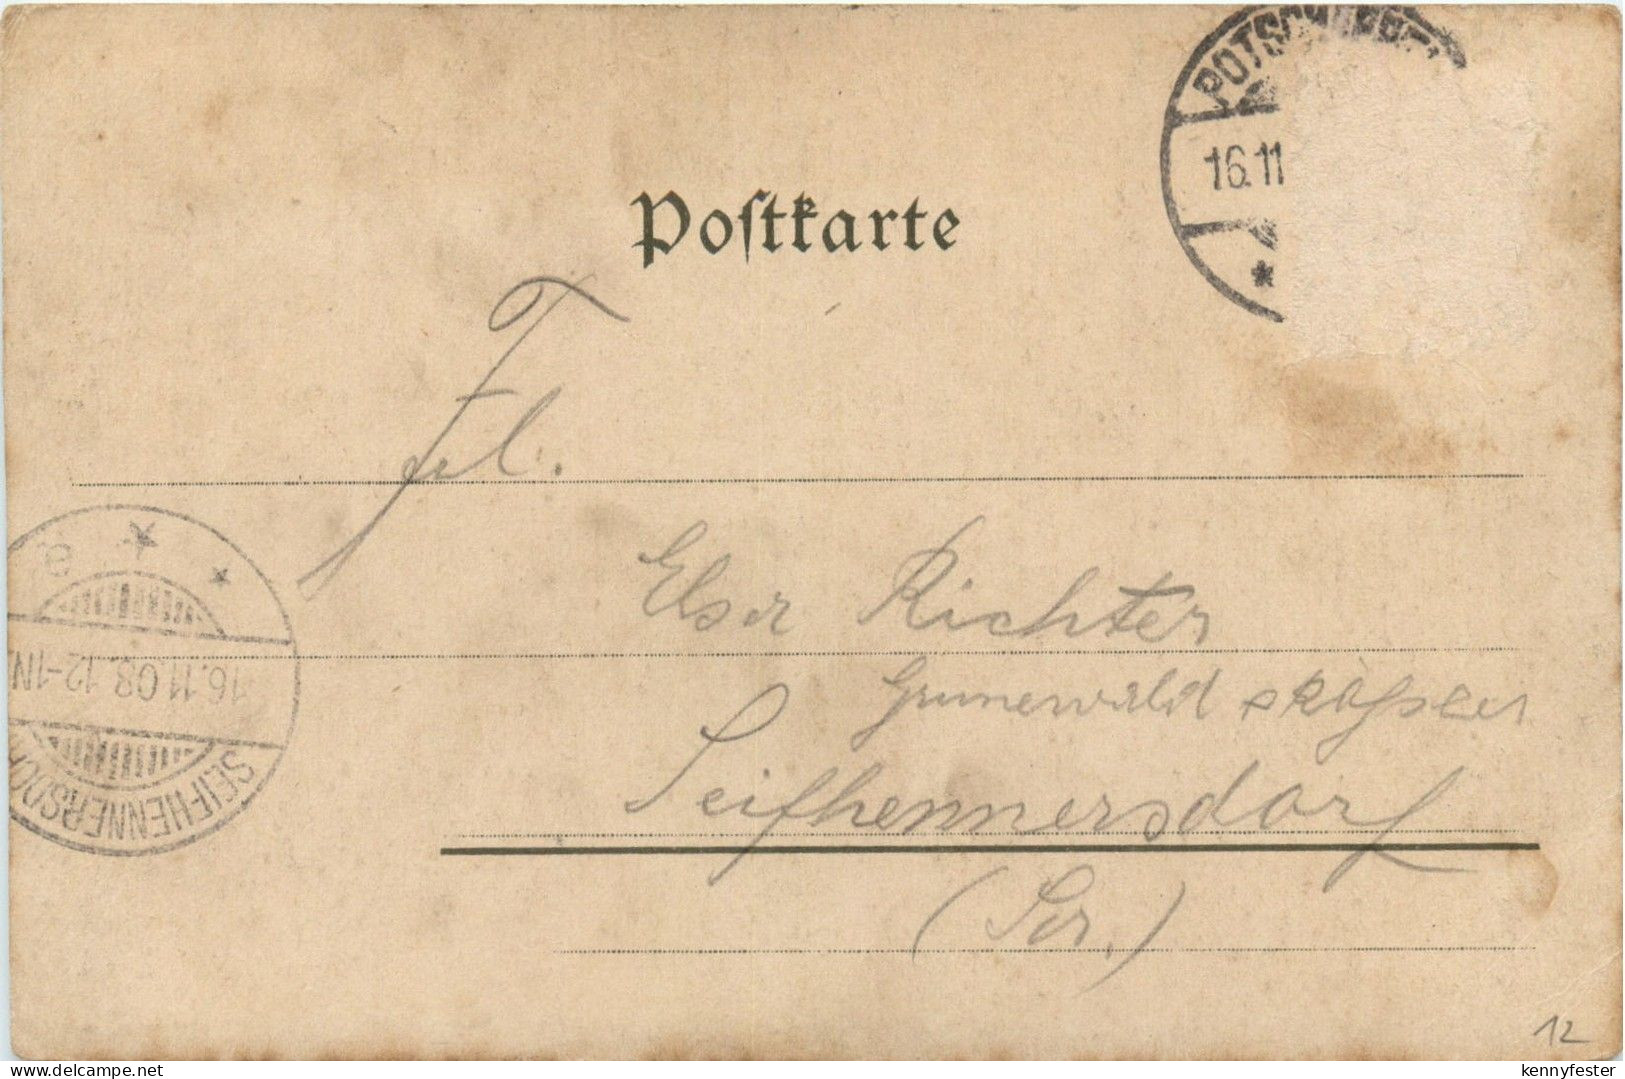 POTSCHAPPEL
16.11
*
Postkarte
Frl.
Elsa Richter
Seifhennersdorf
(Sa.)
SEIFHENNERSDORF
16.11.08.12-1N.
* * e
12
delcampe.net
kennyfester